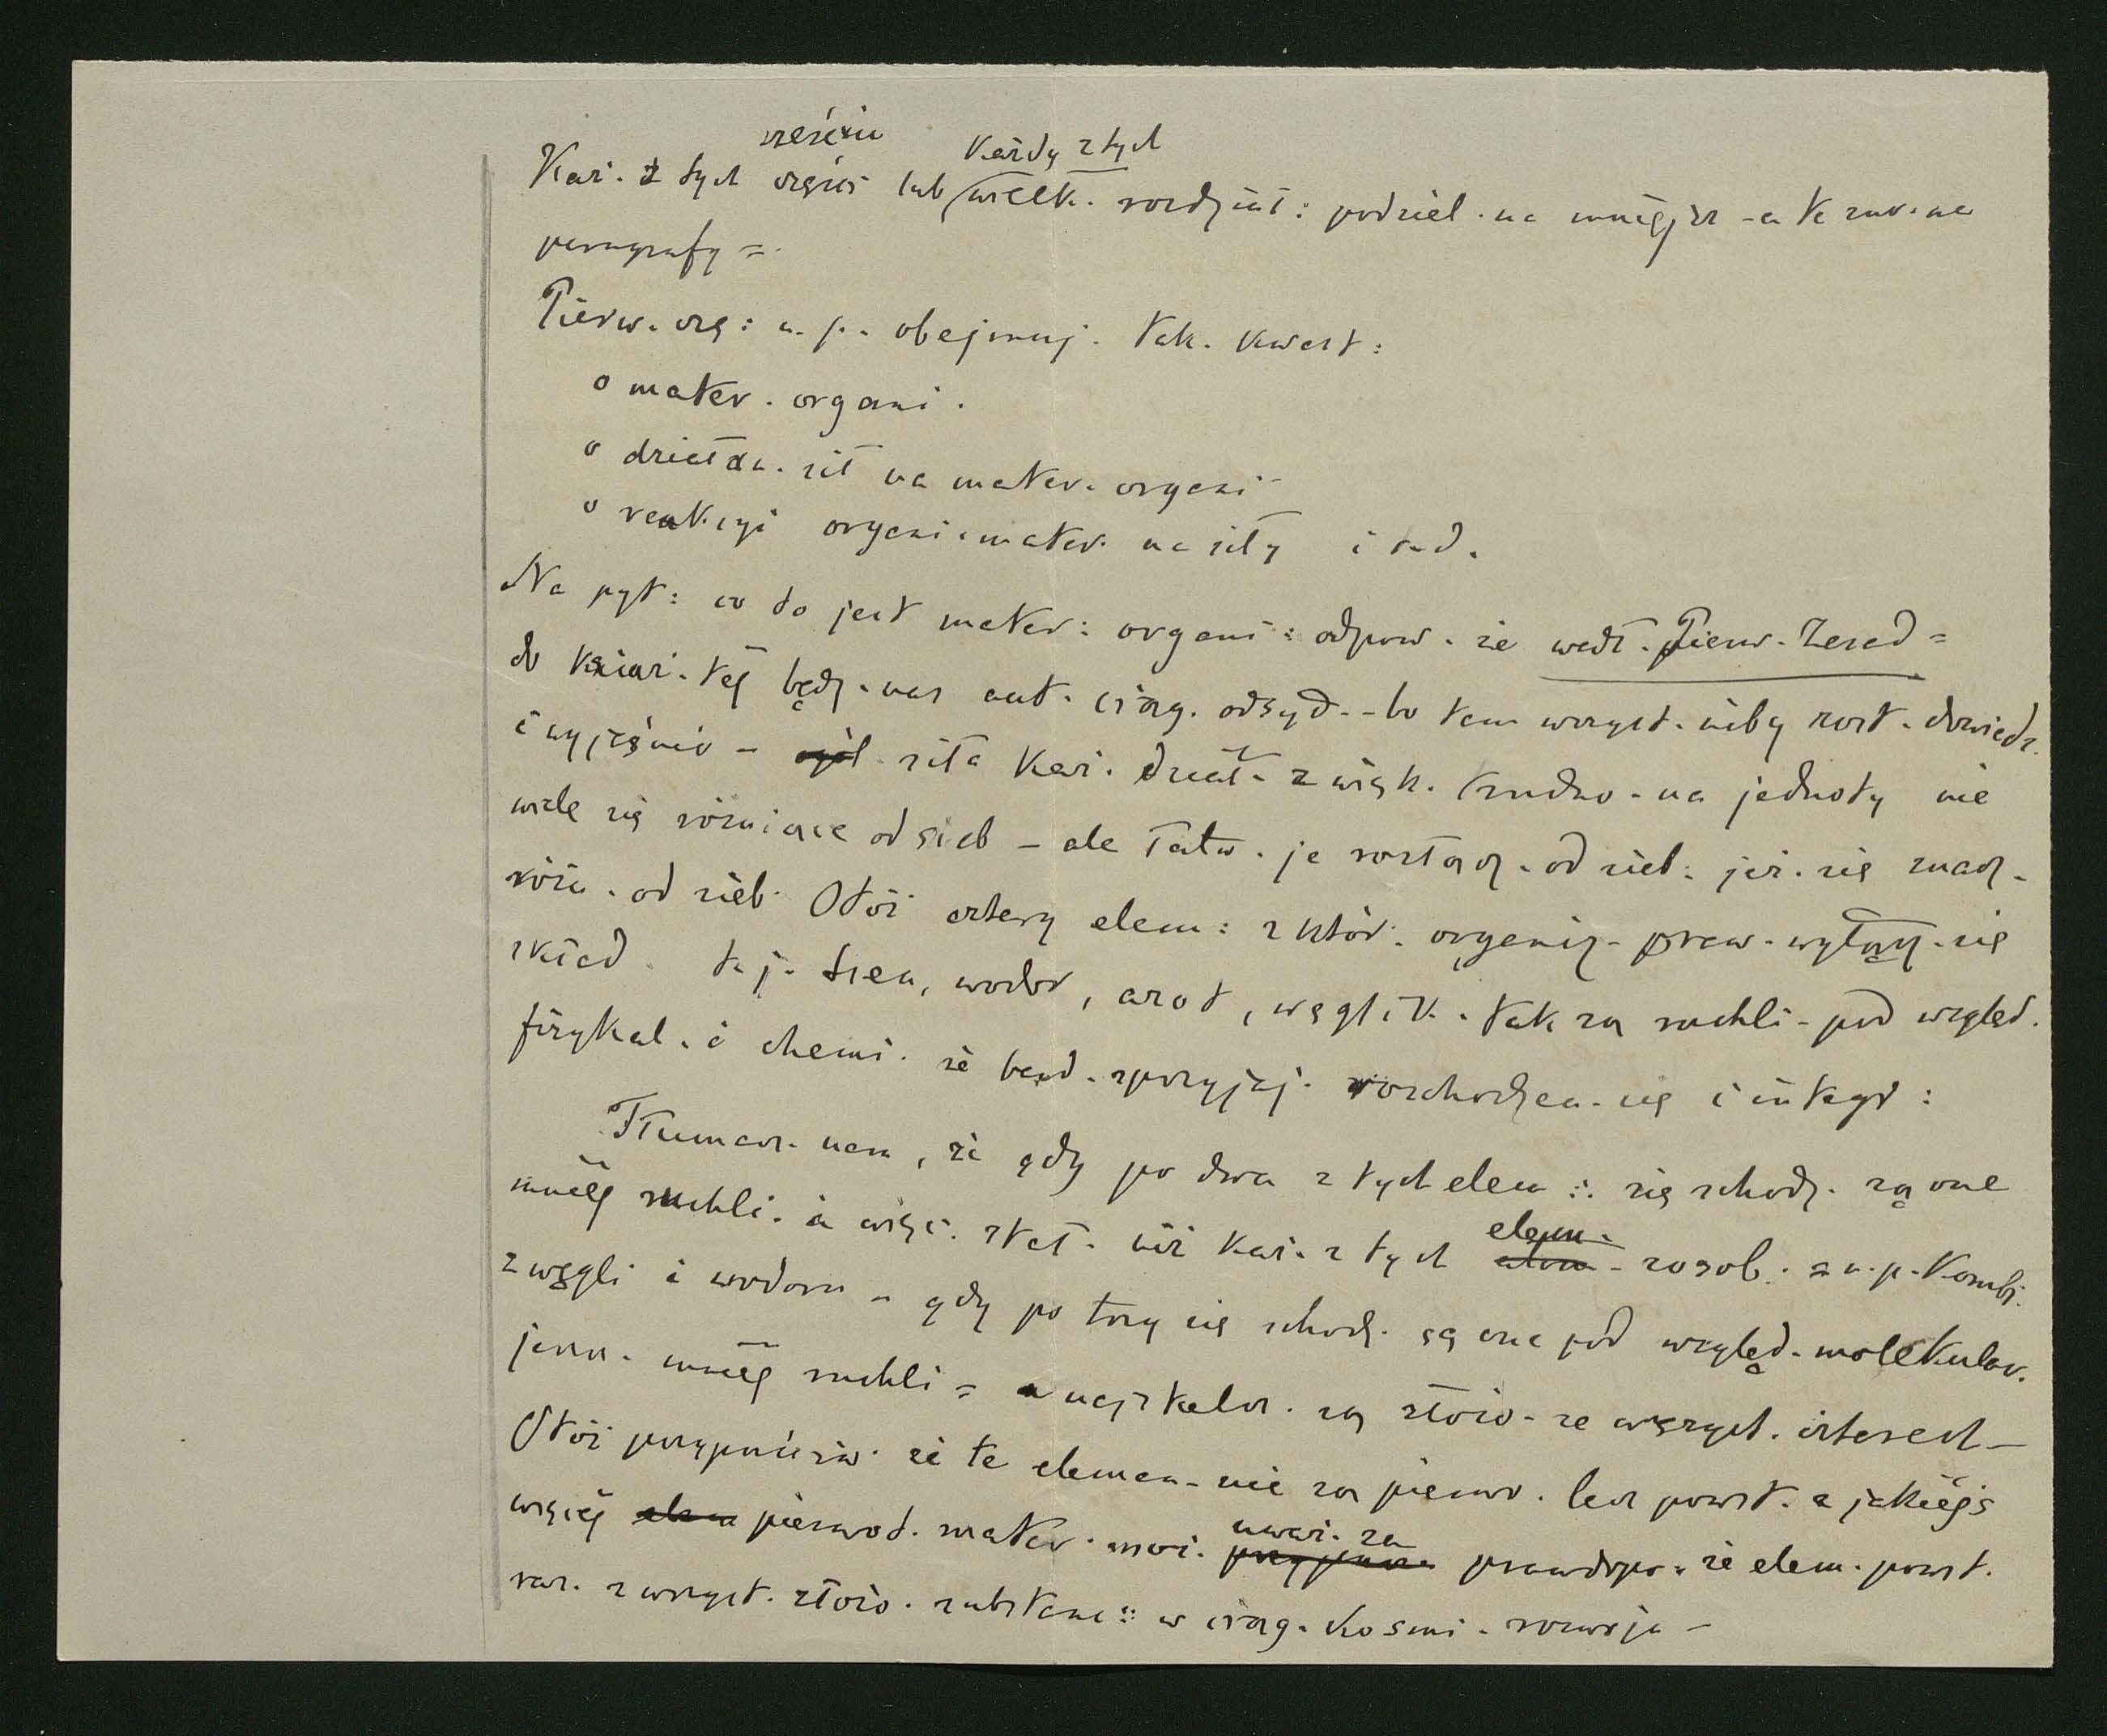 sześciu każdy z tych
Każ. z tych części lub wielk. rozdział: podziel. na mniejsz - a te znw. na
paragrafy =
Pierw. czę: n. p. obejmuj. tak. kwest:
o mater. organi.
o działa. sił na mater. organi
o reakcyi organi. mater. na siły i t. d.
Na pyt: co to jest mater: organi: odpow. że wedł. Pierw. Zasad =
do książ. tej będz. nas aut. ciąg. odsył. - bo tam wszyst. niby zost. dowiedz.
i wyjaśnio - siła każ. dział. z więk. trudno. na jednoty nie
wiele się różniące od sieb - ale łatw. je rozłącz. od sieb: jeż. się znacz.
różn. od sieb. Otóż cztery elem: z któr. organiz. praw. wyłącz. się
skład. t. j. tlen, wodor, azot, węglik. tak są ruchli - pod wzgled.
fizykal. i chemi. że bard. sprzyjaj. rozchodzen. się i integr:
Tłumacz. nam, że gdy po dwa z tych elem:. się schodz. są one
mniej ruchli. a więc. stał. niż każ. z tych elem. zosob. n. p. kombi.
z węgli i wodoru - gdy po trzy się schodz. są one pod wzgląd. molekular.
jeszcz. mniej ruchli = a najstalsz. są złożo. ze wszyst. czterech -
Otóż przypuściw. że te elemen. nie są pierwo. lecz powst. z jakiejś
więcej pierwot. mater. moż. uważ. za prawdopo. że elem. powst.
raz. z wszyst. złożo. substanc:: w ciąg. kosmi. rozwoju -